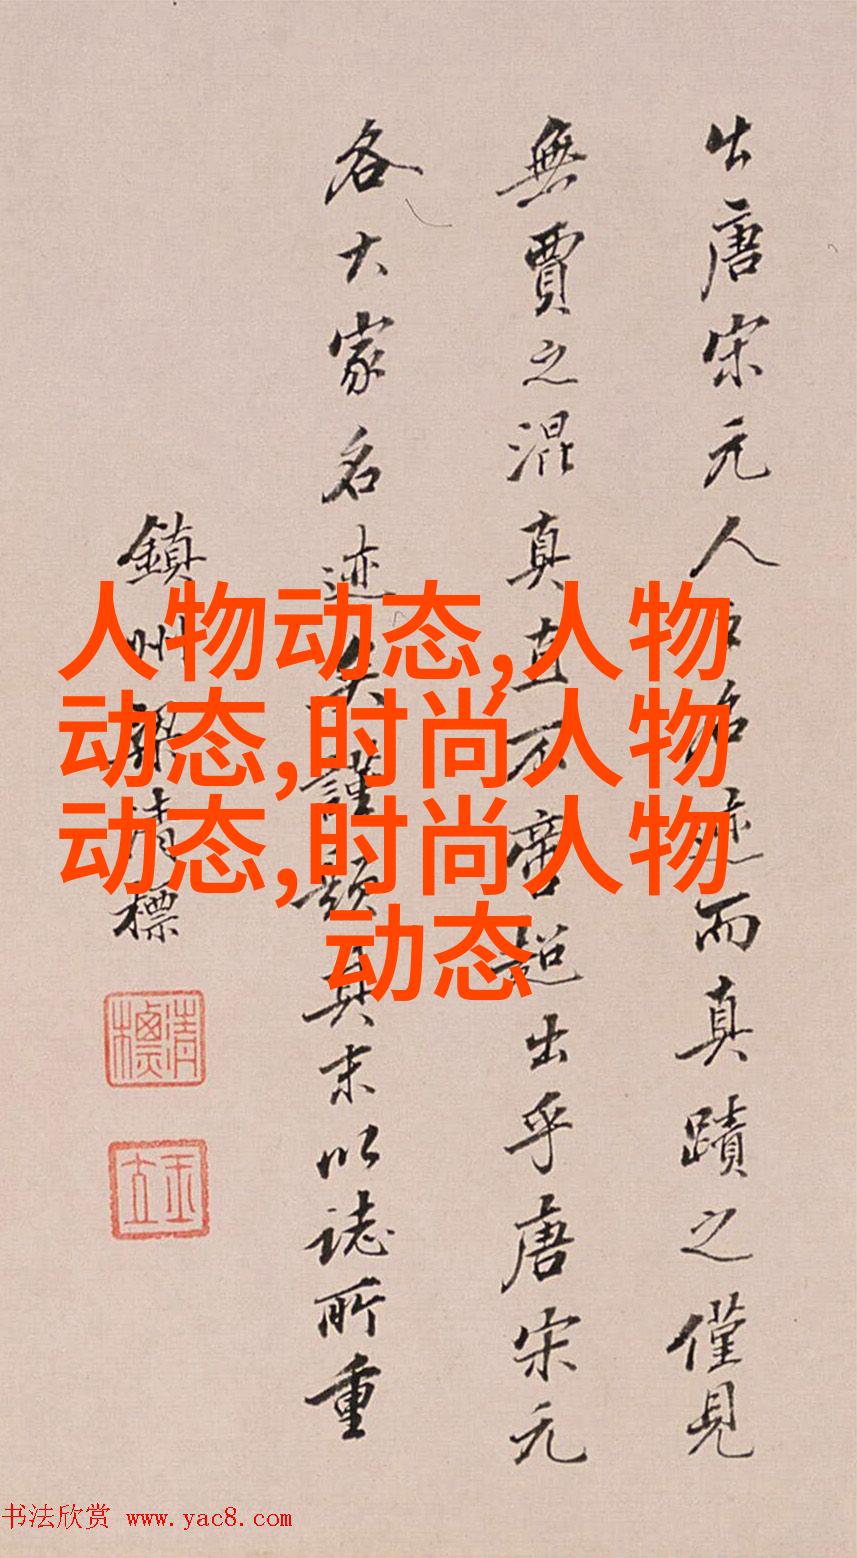 出唐宋元人而真蹟之僅見
無賈之混真直不啻超出乎唐宋元
各大家名迹矣謹題其末以誌所重
鎮州梁清標
清標
玉立
人物动态,人物
动态,时尚人物
动态,时尚人物
动态
书法欣赏 www.yac8.com